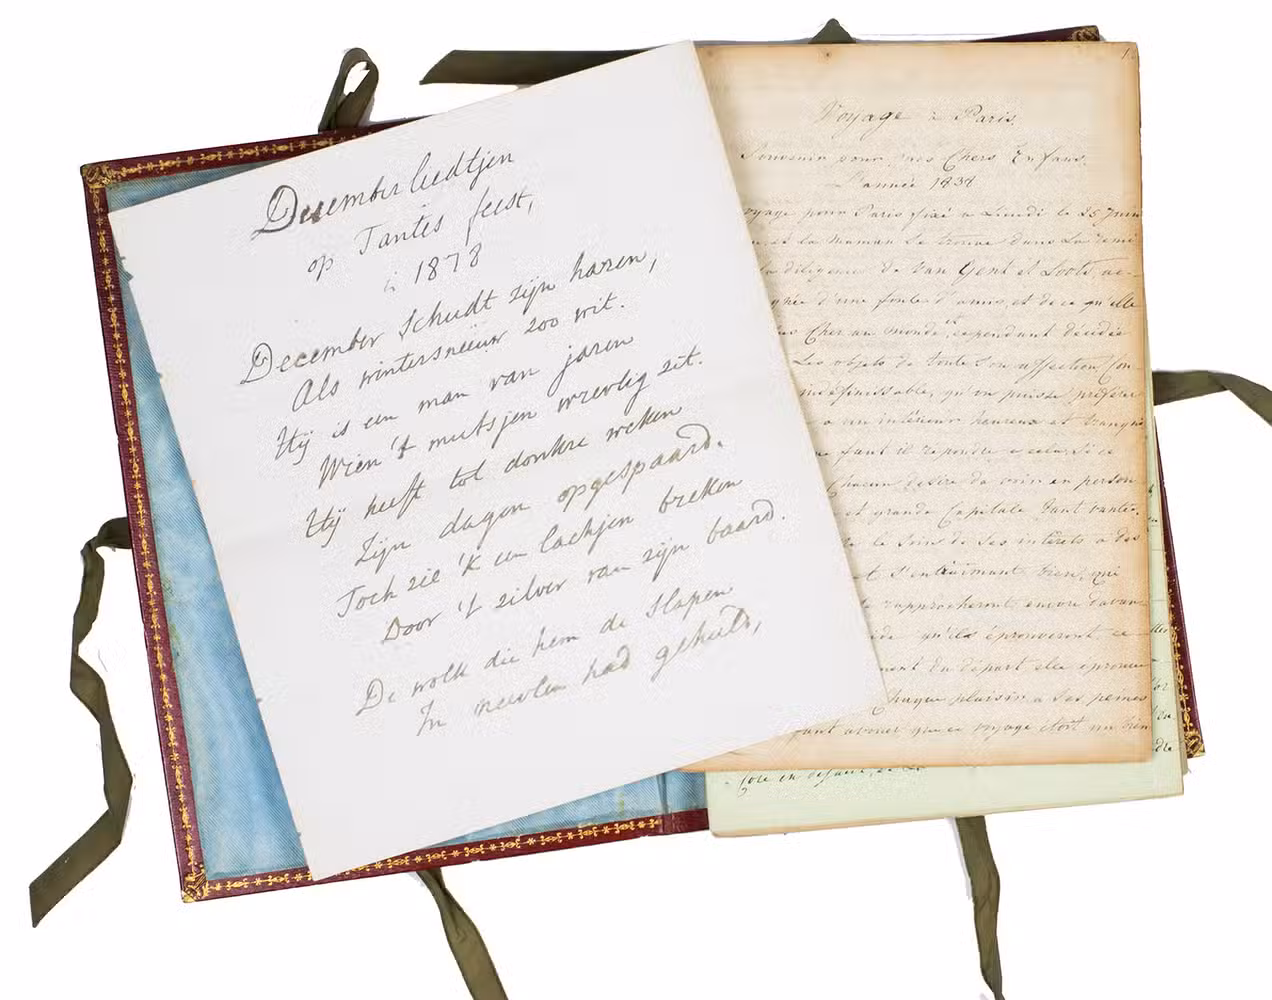 Decemberliedtjen
op Tantes feest,
in 1878
December schudt zijn haren,
Als wintersneeuw zoo wit.
Hij is een man van jaren
Wien 't mutsjen wrevlig zit.
Hij heeft tot donkre weken
Zijn dagen opgespaard.
Toch zie 'k een lachjen breken
Door 't zilver van zijn baard.
De wolk die hem de slapen
In nevelen had gehuld,
1.
Voyage à Paris.
Souvenir pour mes Chers Enfans.
L'année 1838
voyage pour Paris fixé a Lundi le 25 Juin
et la maman se trouve dans la
la diligence de Van Gent et Loots, ac-
d'une foule d'amis et de ce qu'elle
Cher au monde, cependant décidée
Les objets de toute son affection, Con
indéfinissable, qu'on puisse préferer
a un intérieur heureux et tranqui
faut il repondre a cela si ce
Chacun desire de voir en person
et grande Capitale tant vantée.
le soin de ses intérêts a des
et s'entraimant bien, qui
rapprocheront encore davan
qu'ils éprouveront ce
du départ elle éprouve
Chaque plaisir a ses peines
avouer que ce voyage étoit un bien